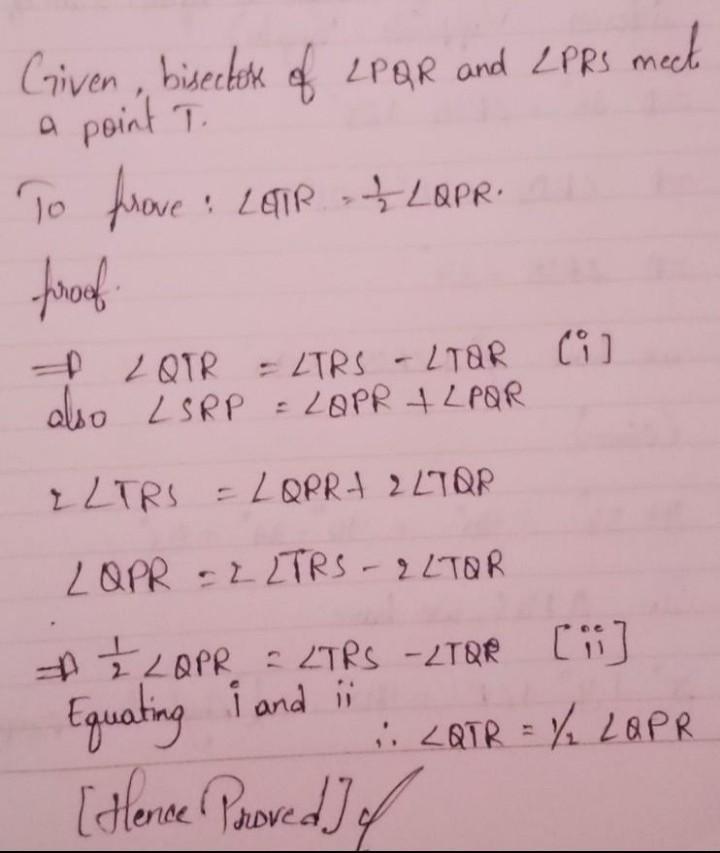 Given, bisector of ∠PQR and ∠PRS meet
a point T.
To prove : ∠QTR = ½ ∠QPR.
proof.
⇒ ∠QTR = ∠TRS - ∠TQR [i]
also ∠SRP = ∠QPR + ∠PQR
2 ∠TRS = ∠QPR + 2∠TQR
∠QPR = 2 ∠TRS - 2∠TQR
⇒ ½ ∠QPR = ∠TRS - ∠TQR [ii]
Equating i and ii
∴ ∠QTR = ½ ∠QPR
[Hence Proved]